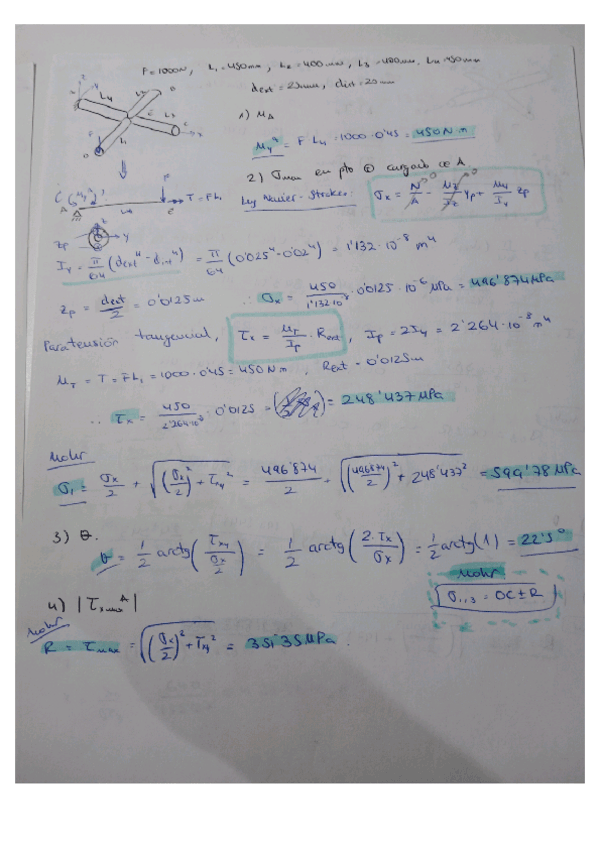 F = 1000N, L₁ = 450mm, L₂ = 400mm, L₃ = 400mm, L₄ = 450mm
dext = 25mm, dint = 20mm
1) M_A
M_y^A = F L₄ = 1000 · 0'45 = 450 N·m
2) σmax en pto cargado A.
Ley Navier-Strokes: σx = N/A - Mz/Iz yp + My/Iy zp
T = FL₁
Iy = π/64 (dext⁴ - dint⁴) = π/64 (0'025⁴ - 0'02⁴) = 1'132·10⁻⁸ m⁴
zp = dext/2 = 0'0125m ∴ σx = 450/1'132·10⁻⁸ · 0'0125 · 10⁻⁶ MPa = 496'874 MPa
Para tensión tangencial, τx = MT/Ip · Rext, Ip = 2Iy = 2'264·10⁻⁸ m⁴
MT = T = FL₁ = 1000 · 0'45 = 450 N m, Rext = 0'0125m
∴ τx = 450/2'264·10⁻⁸ · 0'0125 = 248'437 MPa
Mohr
σ₁ = σx/2 + √((σx/2)² + τxy²) = 496'874/2 + √((496'874/2)² + 248'437²) = 599'78 MPa
3) θ.
θ = 1/2 arctg(τxy / (σx/2)) = 1/2 arctg(2·τx/σx) = 1/2 arctg(1) = 22'5°
Mohr
σ₁,₃ = OC ± R
4) |τmax^A|
Mohr
R = τmax = √((σx/2)² + τxy²) = 351'35 MPa.